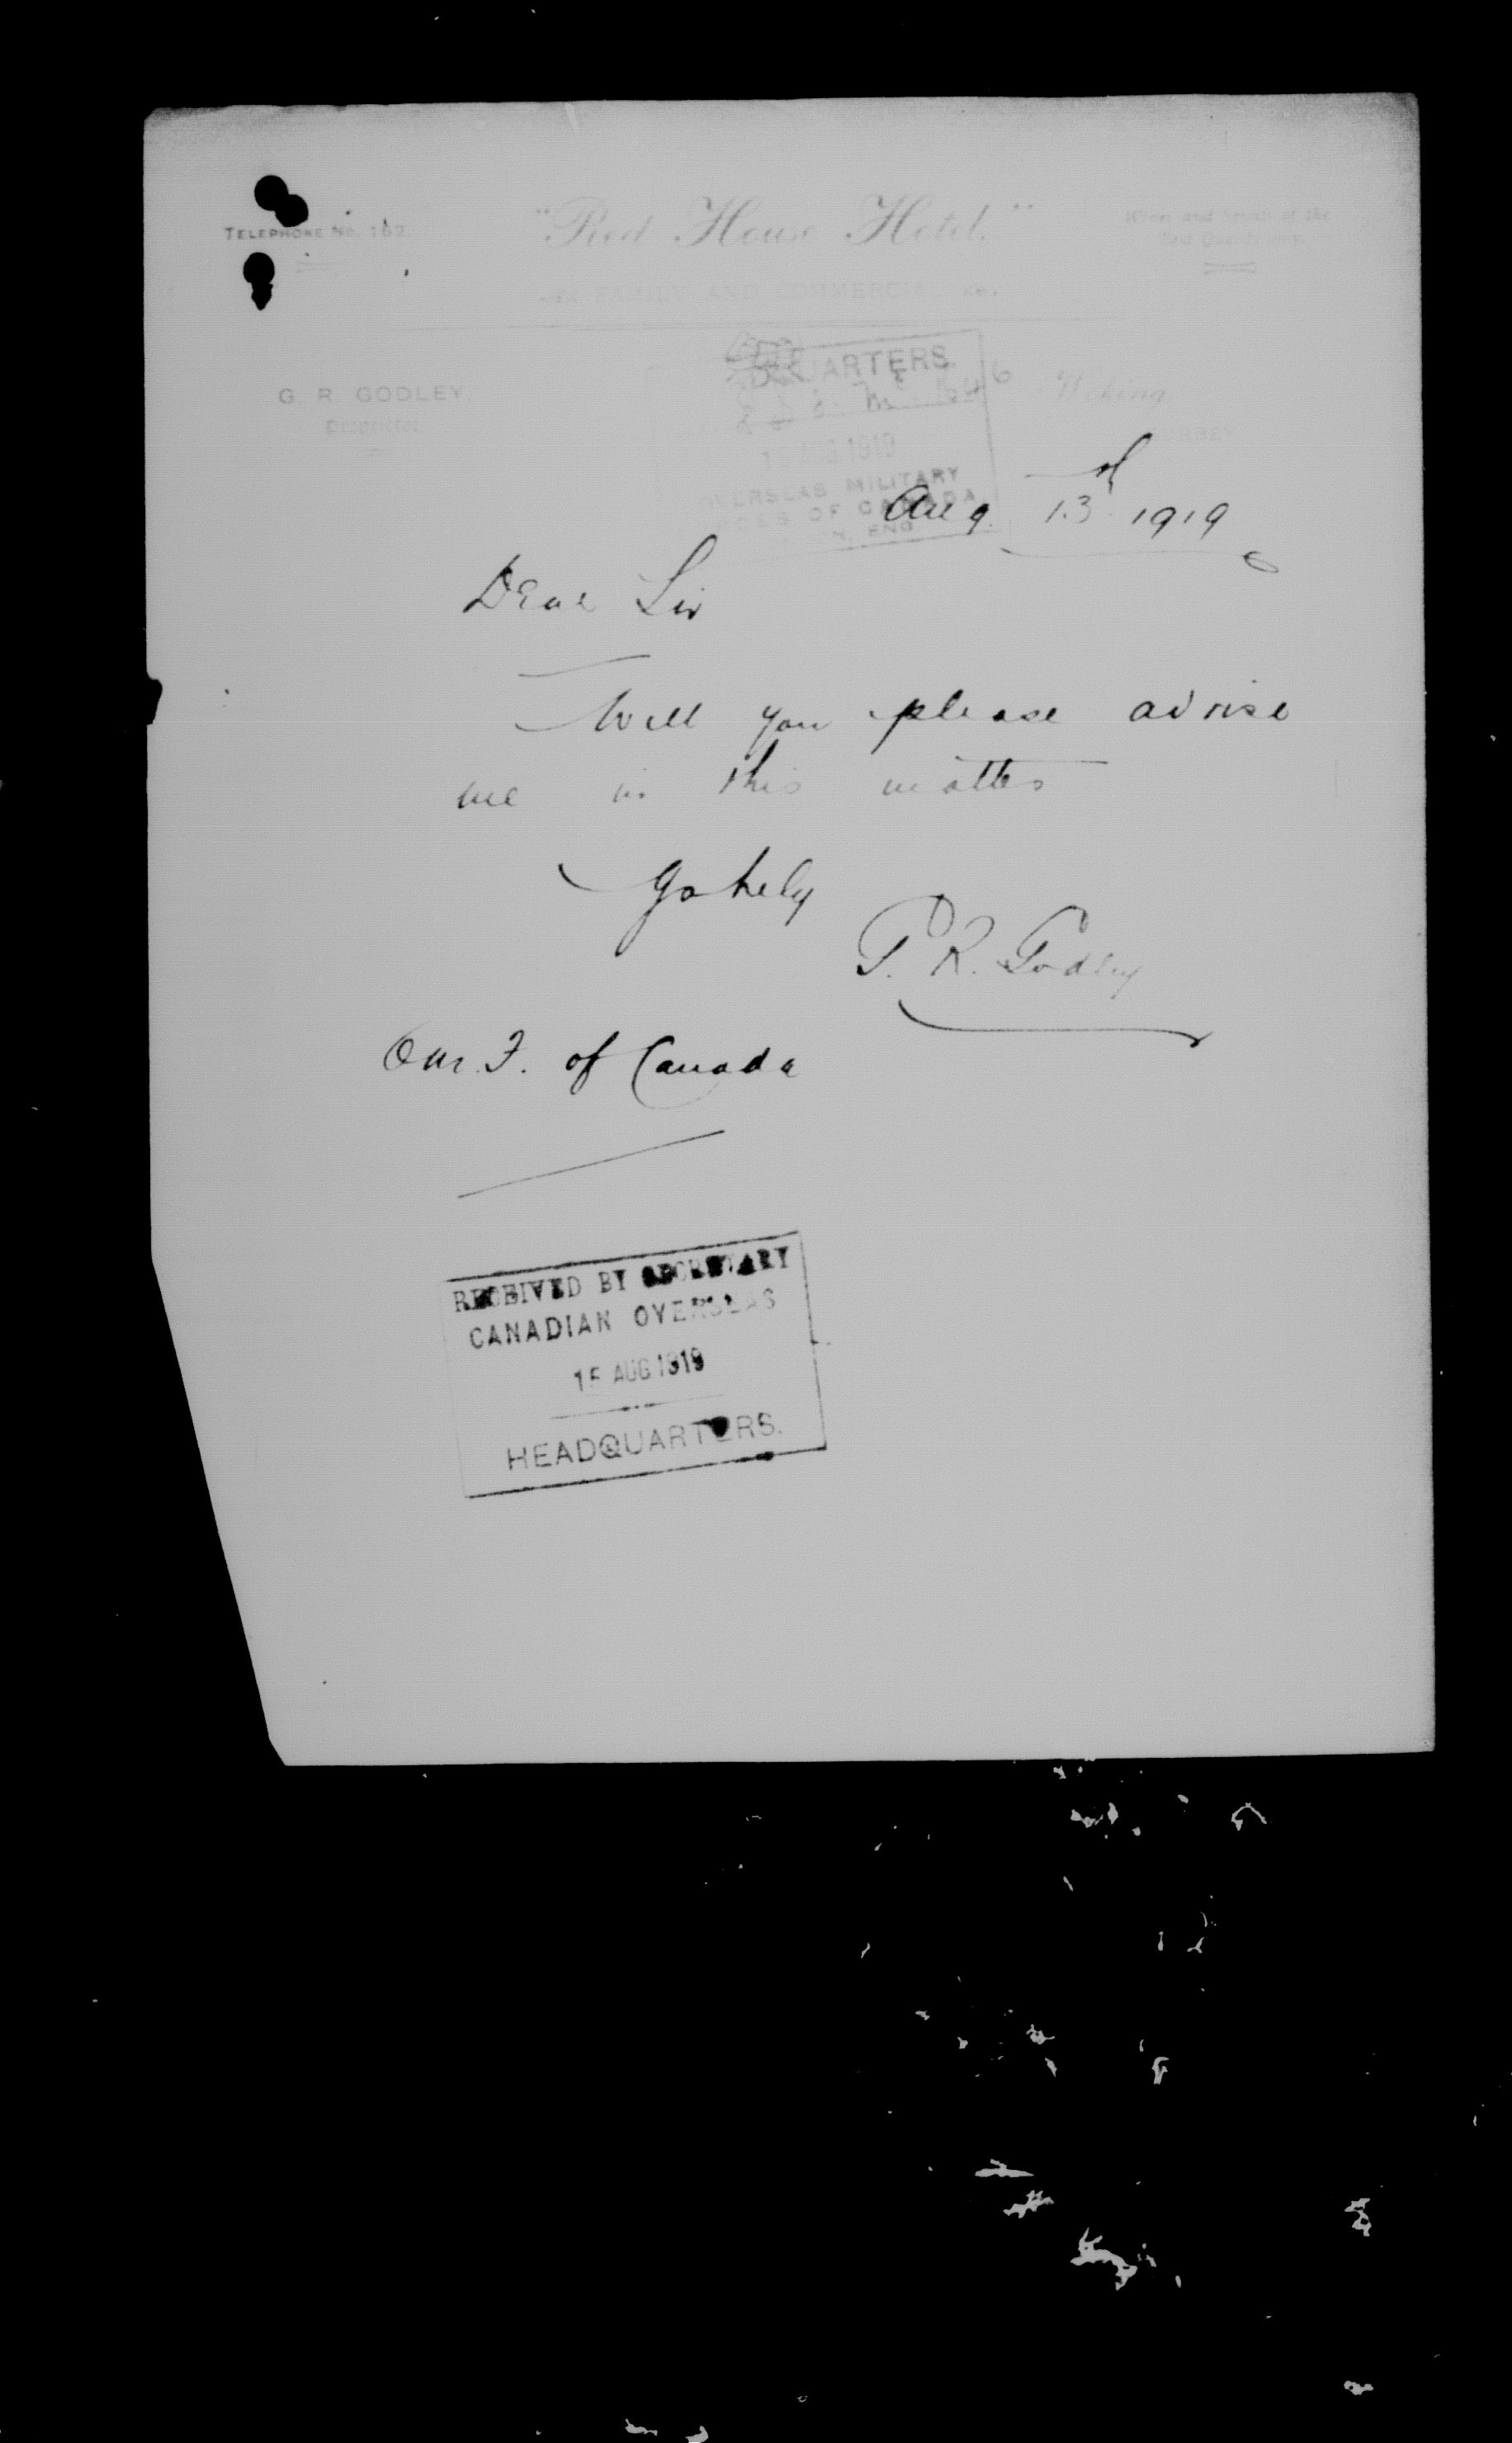 TELEPHONE No. 162.
"Red House Hotel."
Wines and Spirits of the
Best Quality only.
FAMILY AND COMMERCIAL
G. R. GODLEY,
Proprietor.
Woking,
SURREY
QUARTERS.
15 AUG 1919
OVERSEAS MILITARY
OF CANADA
ENG.
Aug 13th 1919
Dear Sir
Will you please advise
me in this matter
Yrs
G. R. Godley
of Canada
RECEIVED BY SECRETARY
CANADIAN OVERSEAS
15 AUG 1919
HEADQUARTERS.